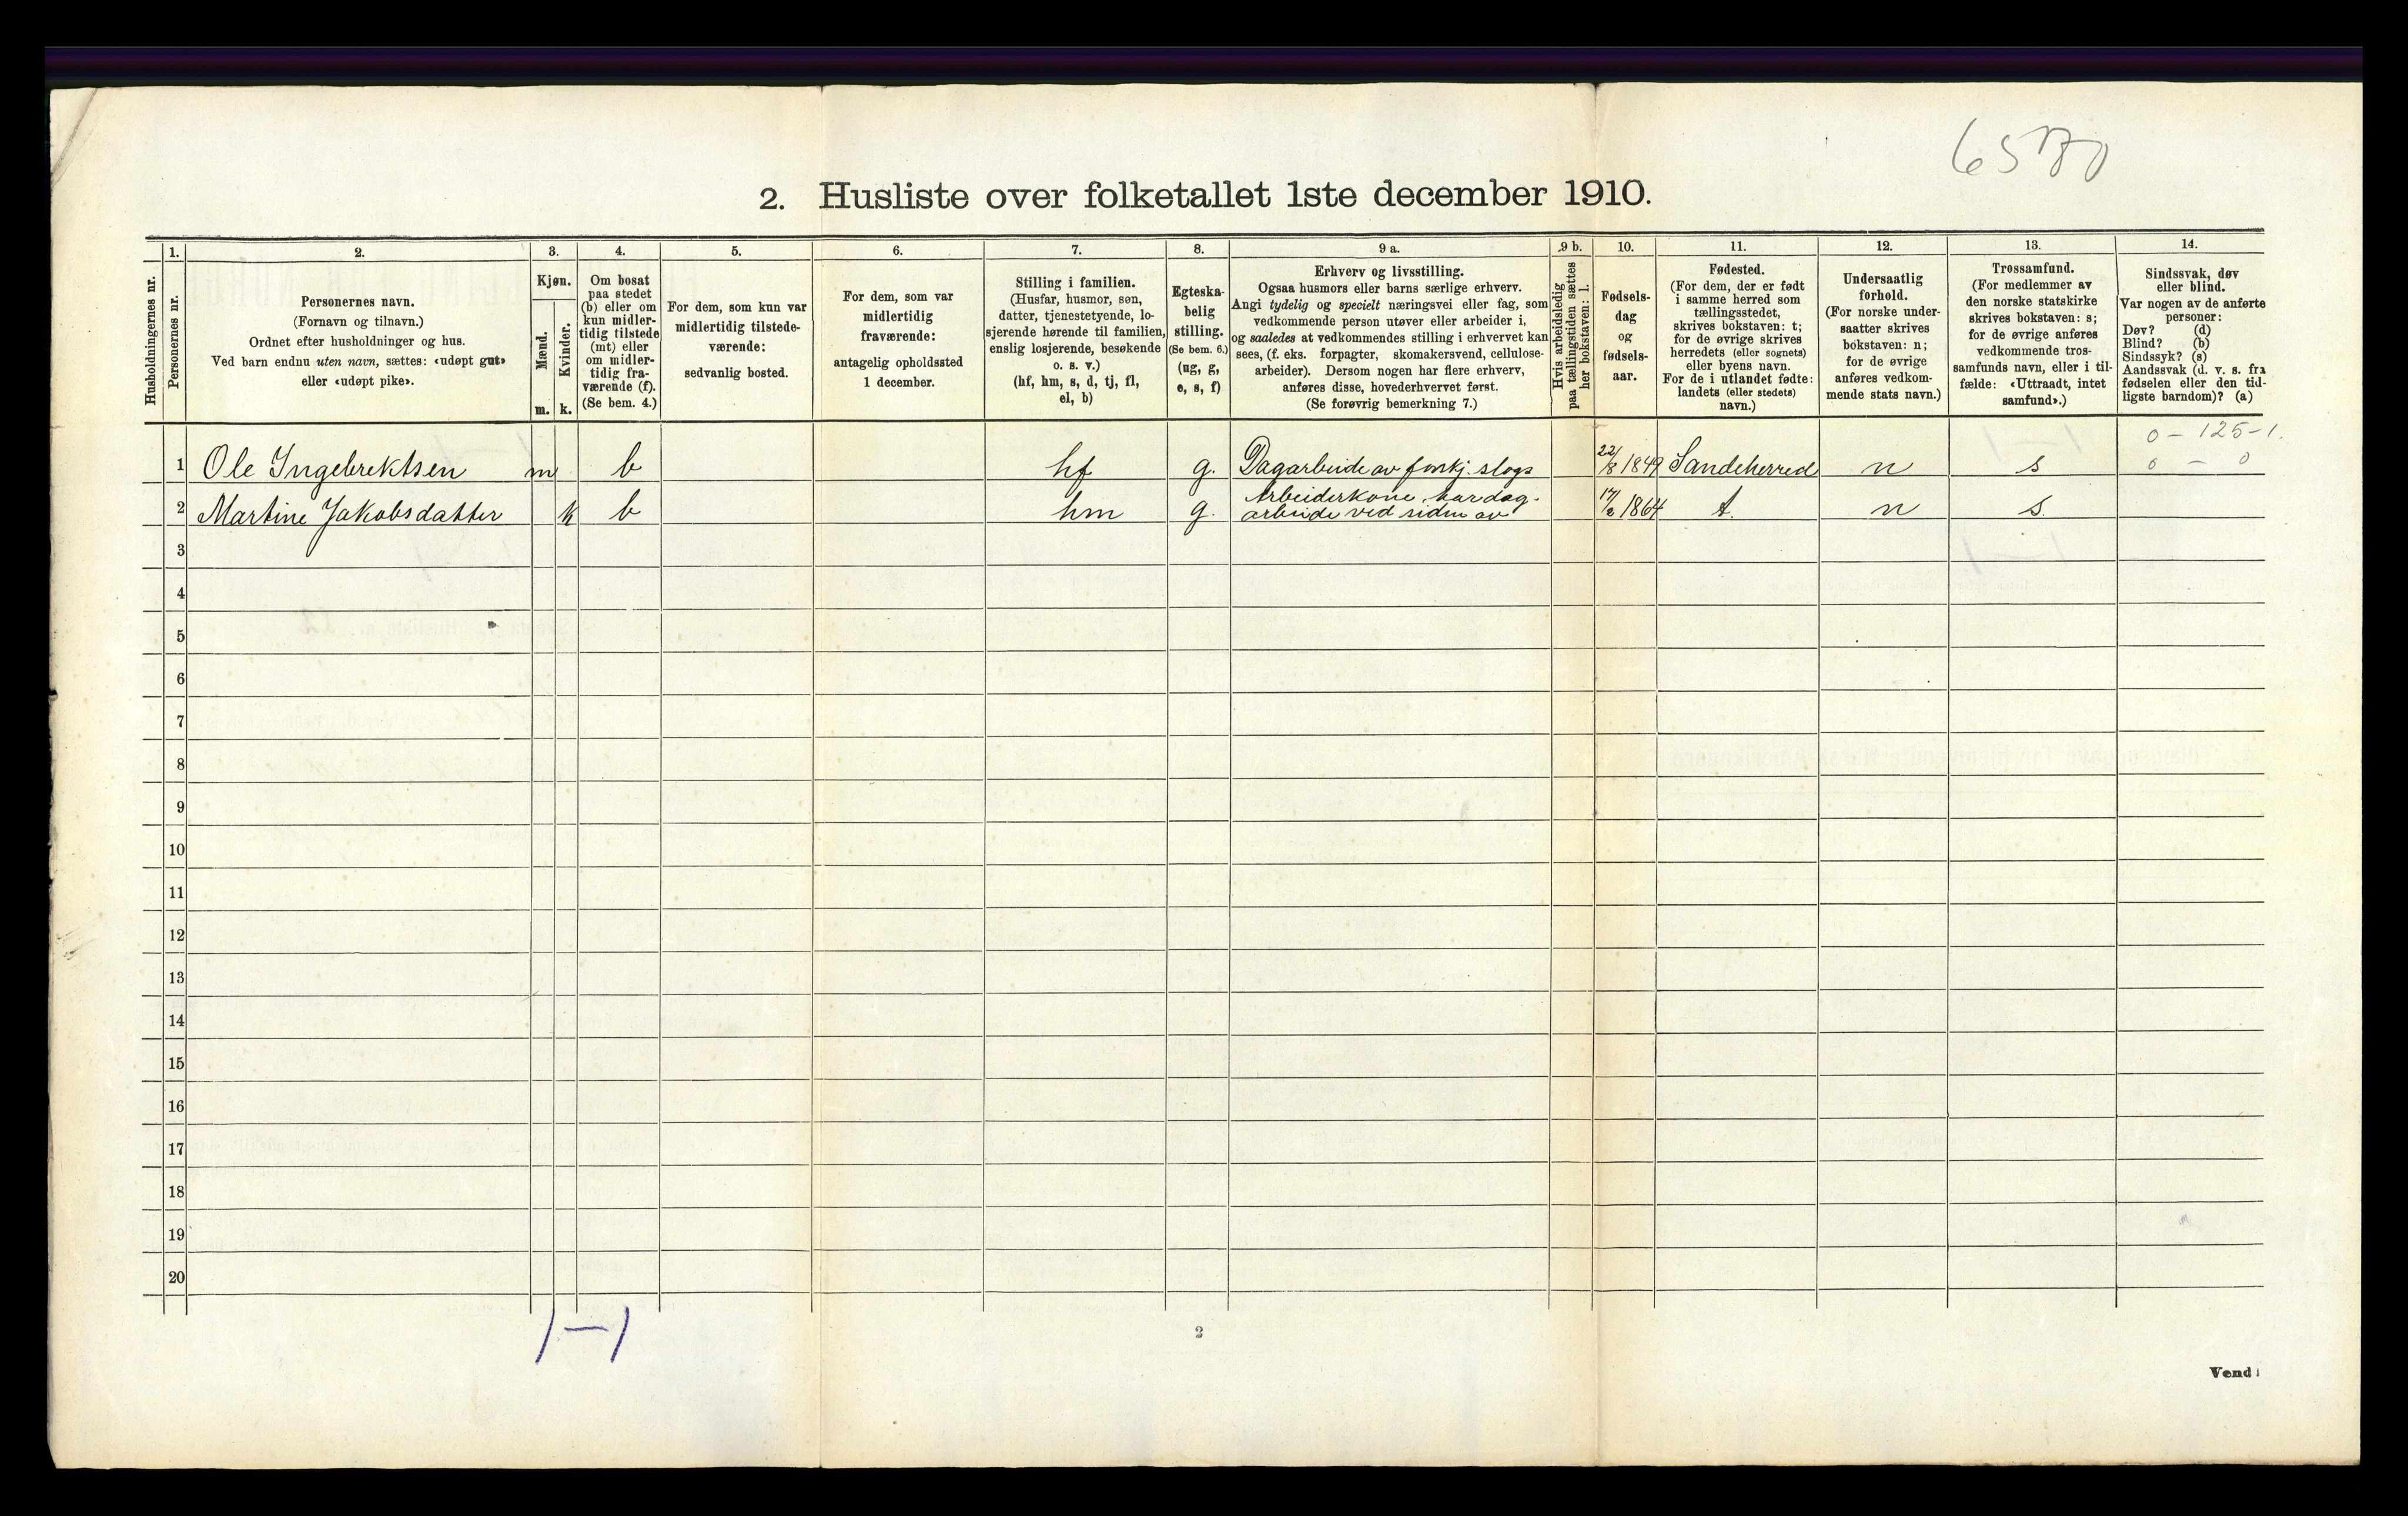 6570
2. Husliste over folketallet 1ste december 1910.
Husholdningernes nr.
1.
Personernes nr.
2.
Personernes navn.
(Fornavn og tilnavn.)
Ordnet efter husholdninger og hus.
Ved barn endnu uten navn, sættes: «udøpt gut»
eller «udøpt pike».
3.
Kjøn.
Mænd.
Kvinder.
m. k.
4.
Om bosat
paa stedet
(b) eller om
kun midler-
tidig tilstede
(mt) eller
om midler-
tidig fra-
værende (f).
(Se bem. 4.)
5.
For dem, som kun var
midlertidig tilstede-
værende:
sedvanlig bosted.
6.
For dem, som var
midlertidig
fraværende:
antagelig opholdssted
1 december.
7.
Stilling i familien.
(Husfar, husmor, søn,
datter, tjenestetyende, lo-
sjerende hørende til familien,
enslig losjerende, besøkende
o. s. v.)
(hf, hm, s, d, tj, fl,
el, b)
8.
Egteska-
belig
stilling.
(Se bem. 6.)
(ug, g,
e, s, f)
9 a.
Erhverv og livsstilling.
Ogsaa husmors eller barns særlige erhverv.
Angi tydelig og specielt næringsvei eller fag, som
vedkommende person utøver eller arbeider i,
og saaledes at vedkommendes stilling i erhvervet kan
sees, (f. eks. forpagter, skomakersvend, cellulose-
arbeider). Dersom nogen har flere erhverv,
anføres disse, hovederhvervet først.
(Se forøvrig bemerkning 7.)
9 b.
Hvis arbeidsledig
paa tællingstiden sættes
her bokstaven: l.
10.
Fødsels-
dag
og
fødsels-
aar.
11.
Fødested.
(For dem, der er født
i samme herred som
tællingsstedet,
skrives bokstaven: t;
for de øvrige skrives
herredets (eller sognets)
eller byens navn.
For de i utlandet fødte:
landets (eller stedets)
navn.)
12.
Undersaatlig
forhold.
(For norske under-
saatter skrives
bokstaven: n;
for de øvrige
anføres vedkom-
mende stats navn.)
13.
Trossamfund.
(For medlemmer av
den norske statskirke
skrives bokstaven: s;
for de øvrige anføres
vedkommende tros-
samfunds navn, eller i til-
fælde: «Uttraadt, intet
samfund».)
14.
Sindssvak, døv
eller blind.
Var nogen av de anførte
personer:
Døv? (d)
Blind? (b)
Sindssyk? (s)
Aandssvak (d. v. s. fra
fødselen eller den tid-
ligste barndom)? (a)
0 – 125 – 1.
1 Ole Ingebrektsen m b hf g. Dagarbeide av forskj. slags 22/8 1849 Sandeherred n s 0 – 0
2 Martine Jakobsdatter k b hm g. Arbeiderkone, har dag-
arbeide ved siden av 17/2 1864 t. n s.
3
4
5
6
7
8
9
10
11
12
13
14
15
16
17
18
19
20
1–1
2
Vend!